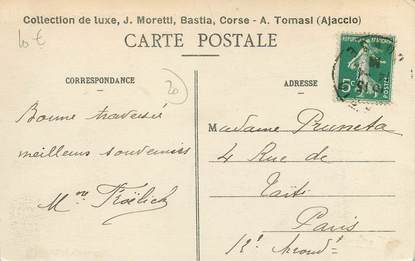 Collection de luxe, J. Moretti, Bastia, Corse - A. Tomasi (Ajaccio)
10 €
CARTE POSTALE
CORRESPONDANCE
20
Bonne traversée
meilleurs souvenirs
Mme Froëlich
ADRESSE
Madame Pruneta
4 Rue de
Taïti
Paris
12e Arrondt
5c
POSTES